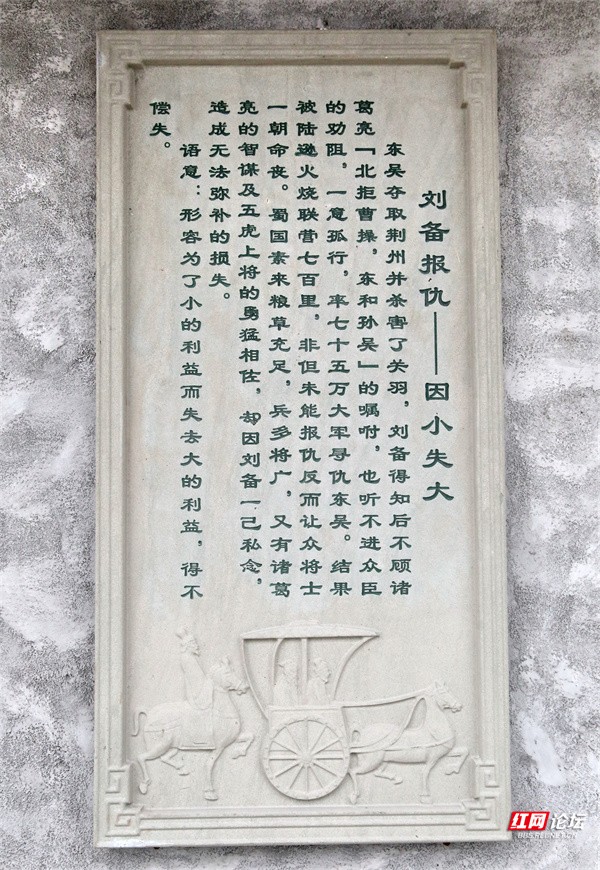 刘备报仇——因小失大
东吴夺取荆州并杀害了关羽，刘备得知后不顾诸
葛亮「北拒曹操，东和孙吴」的嘱咐，也听不进众臣
的劝阻，一意孤行，率七十五万大军寻仇东吴。结果
被陆逊火烧联营七百里，非但未能报仇反而让众将士
一朝命丧。蜀国素来粮草充足，兵多将广，又有诸葛
亮的智谋及五虎上将的勇猛相佐，却因刘备一己私念，
造成无法弥补的损失。
语意：形容为了小的利益而失去大的利益，得不
偿失。
红网论坛
BBS.REDNET.CN